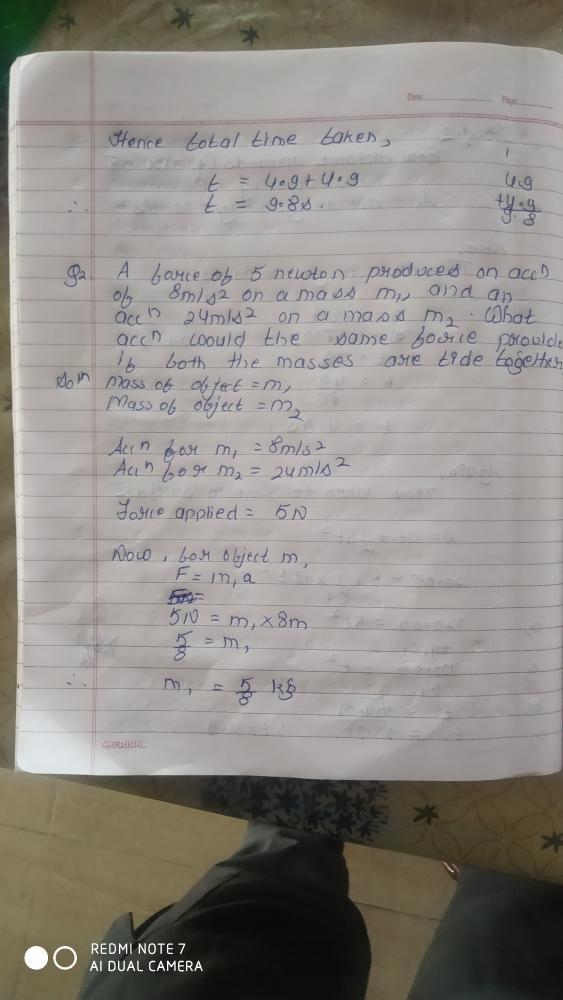 Date: Page:
Hence total time taken,
t = 4.9 + 4.9
∴ t = 9.8s.
4.9
+4.9
9.8
Q2. A force of 5 newton produces on accn
of 8m/s² on a mass m1, and an
accn 24m/s² on a mass m2. What
accn would the same force provide
if both the masses are tide together
Soln Mass of object = m1
Mass of object = m2
Accn for m1 = 8m/s²
Accn for m2 = 24m/s²
Force applied = 5N
Now, for object m1
F = m1a
5N = m1 × 8m
5/8 = m1
∴ m1 = 5/8 kg
GURUKUL
REDMI NOTE 7
AI DUAL CAMERA